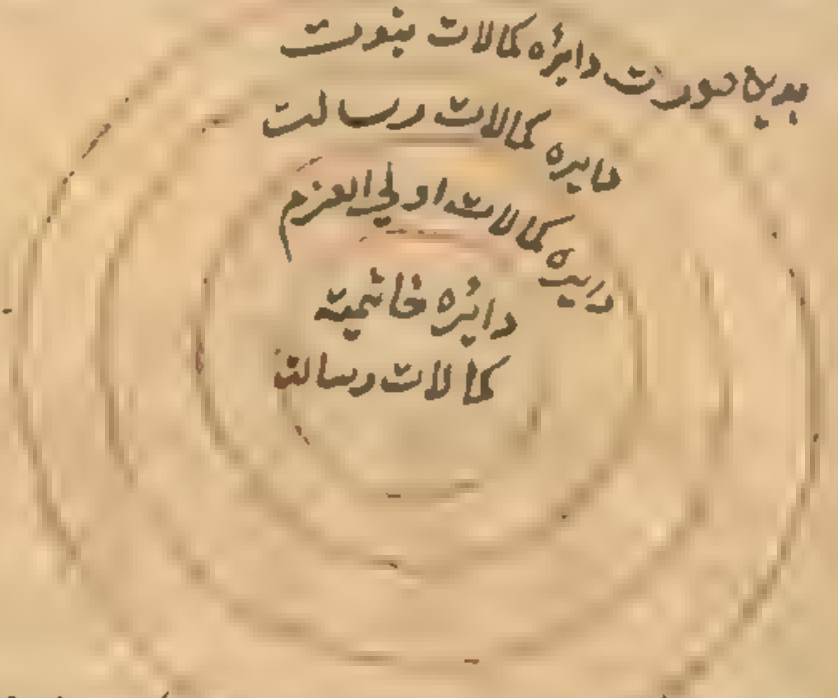 بدین صورت دایره کمالات نبوت
دایره کمالات رسالت
دایره کمالات اولی العزم
دایره خاتمیة
کمالات رسالت